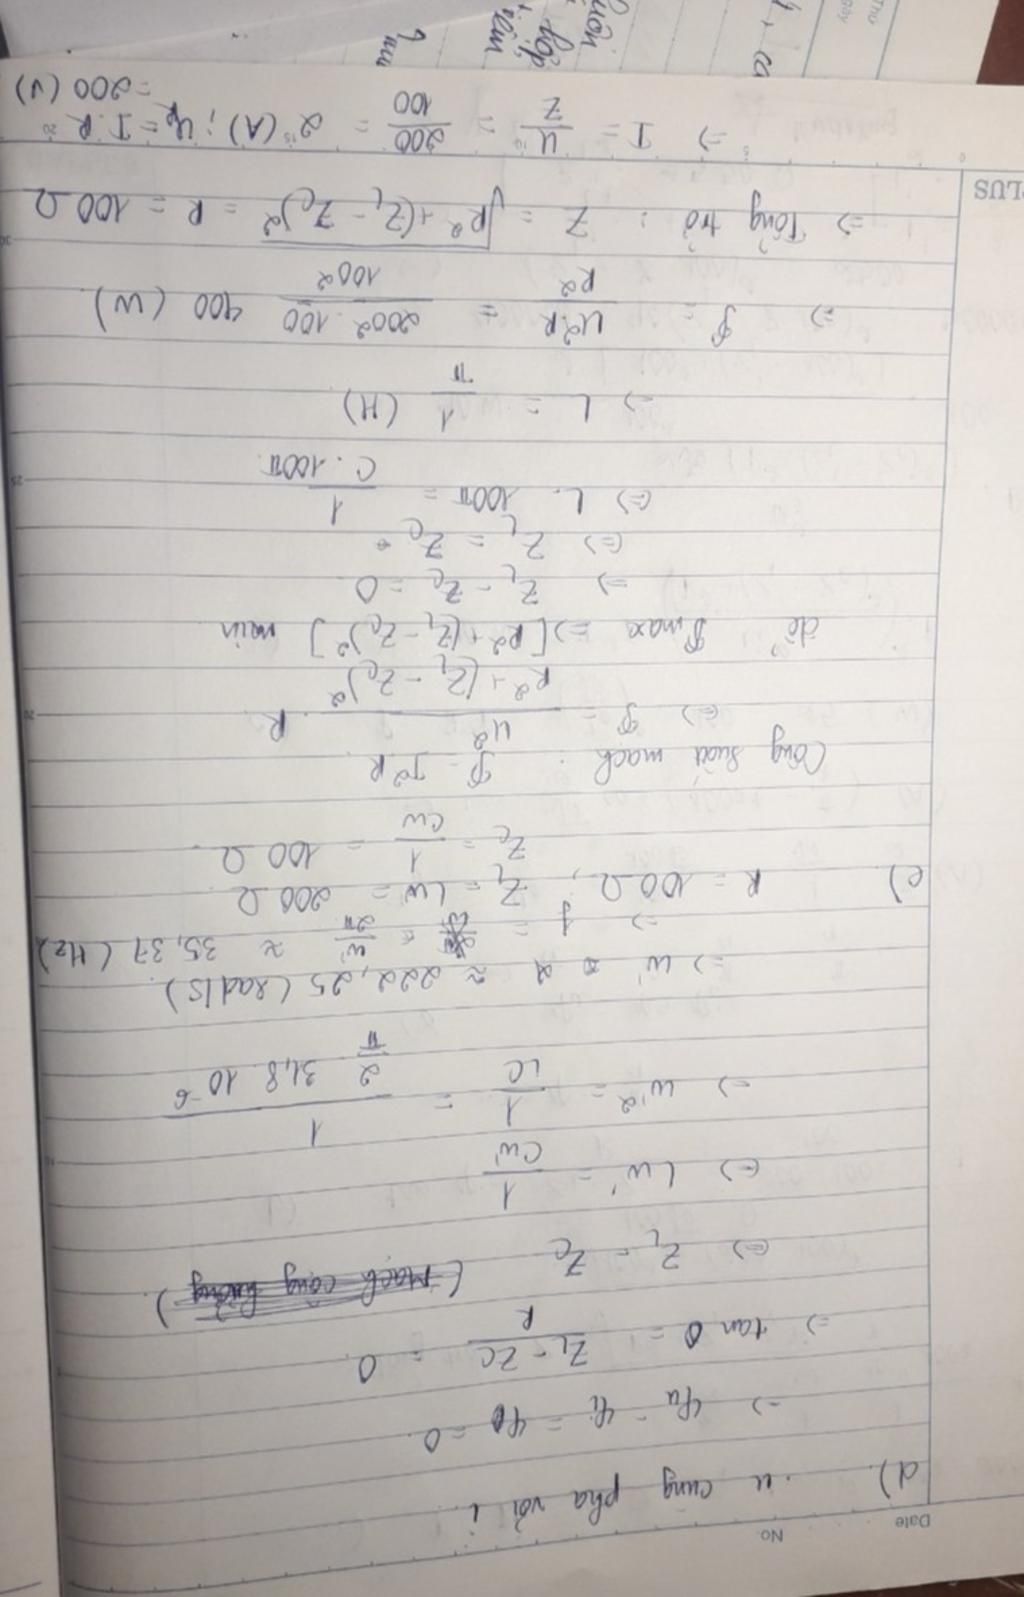 Date No
d). u cùng pha với i.
=> φu - φi = φ = 0.
=> tan 0 = ZL - ZC / R = 0.
<=> ZL = ZC (Mạch cộng hưởng).
<=> Lw' = 1 / Cw'
=> w'2 = 1 / LC = 1 / 2/π 31,8 10-6
=> w' ≈ 222,25 (rad/s).
=> f = w' / 2π ≈ 35,37 (Hz)
e). R = 100Ω, ZL = Lw = 200Ω
ZC = 1 / Cw = 100Ω.
Công suất mạch: P = I2R
<=> P = U2 / R2 + (ZL - ZC)2 . R
để Pmax => [R2 + (ZL - ZC)2] min
=> ZL - ZC = 0
<=> ZL = ZC.
<=> L. 100π = 1 / C. 100π
=> L = 1 / π (H)
=> P = U2R / R2 = 2002.100 / 1002 400 (W).
=> Tổng trở: Z = √R2 + (ZL - ZC)2 = R = 100Ω
=> I = U / Z = 200 / 100 = 2 (A); UR = I.R
= 200 (V)
PLUS